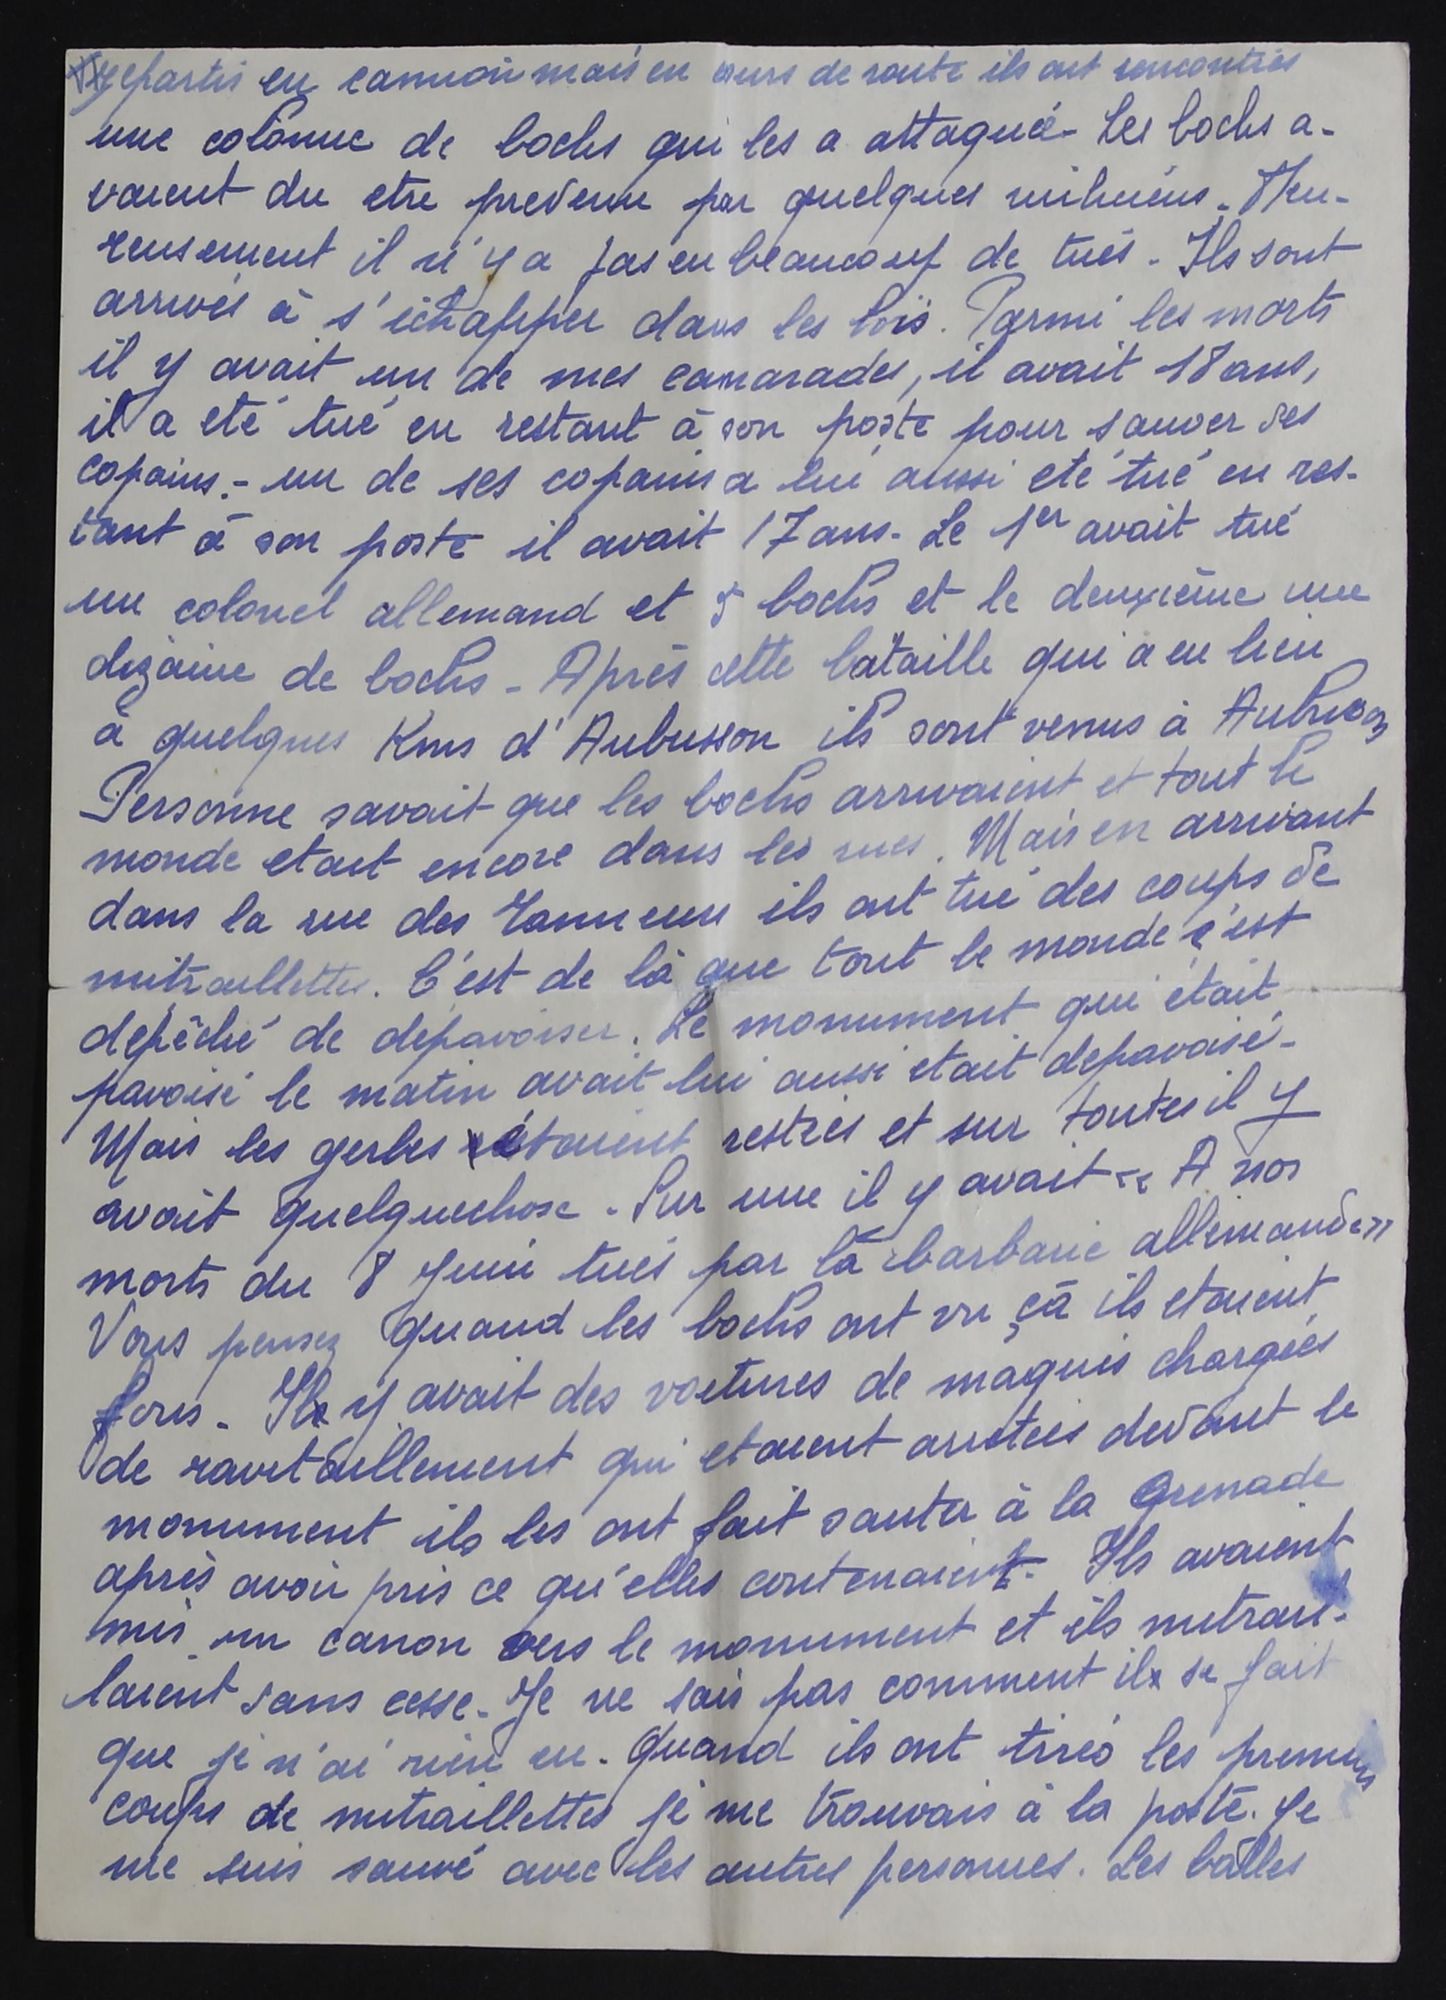 repartis en camion mais en cours de route ils ont rencontrés
une colonne de bochs qui les a attaqué - Les bochs a-
vaient du etre prevenu par quelques miliciens - Heu-
reusement il n'y a pas eu beaucoup de tués - Ils sont
arrivés à s'échapper dans les bois. Parmi les morts
il y avait un de mes camarades, il avait 18 ans,
il a eté tué en restant à son poste pour sauver ses
copains. - un de ses copains a lui aussi eté tué en res-
tant à son poste il avait 17 ans - Le 1er avait tué
un colonel allemand et 5 bochs et le deuxième une
dizaine de bochs - Après cette bataille qui a eu lieu
à quelques Kms d'Aubusson ils sont venus à
Personne savait que les bochs arrivaient et tout le
monde etait encore dans les rues. Mais en arrivant
dans la rue des Tanneurs ils ont tiré des coups de
mitraillettes. C'est de là que tout le monde s'est
dépêché de dépavoiser. Le monument qui était
pavoisé le matin avait lui aussi etait depavoisé -
Mais les gerbes étaient restées et sur toutes il y
avait quelquechose - Sur une il y avait « A nos
morts du 8 Juin tués par la barbarie allemande »
Vous pensez quand les bochs ont vu çà ils etaient
fous - Il y avait des voitures de maquis chargées
de ravitaillement qui etaient arrêtées devant le
monument ils les ont fait sauter à la grenade
après avoir pris ce qu'elles contenaient - Ils avaient
mis un canon vers le monument et ils mitrail-
laient sans cesse - Je ne sais pas comment il se fait
que je n'ai rien eu - Quand ils ont tirés les premiers
coups de mitraillettes je me trouvais à la poste. Je
me suis sauvé avec les autres personnes. Les balles